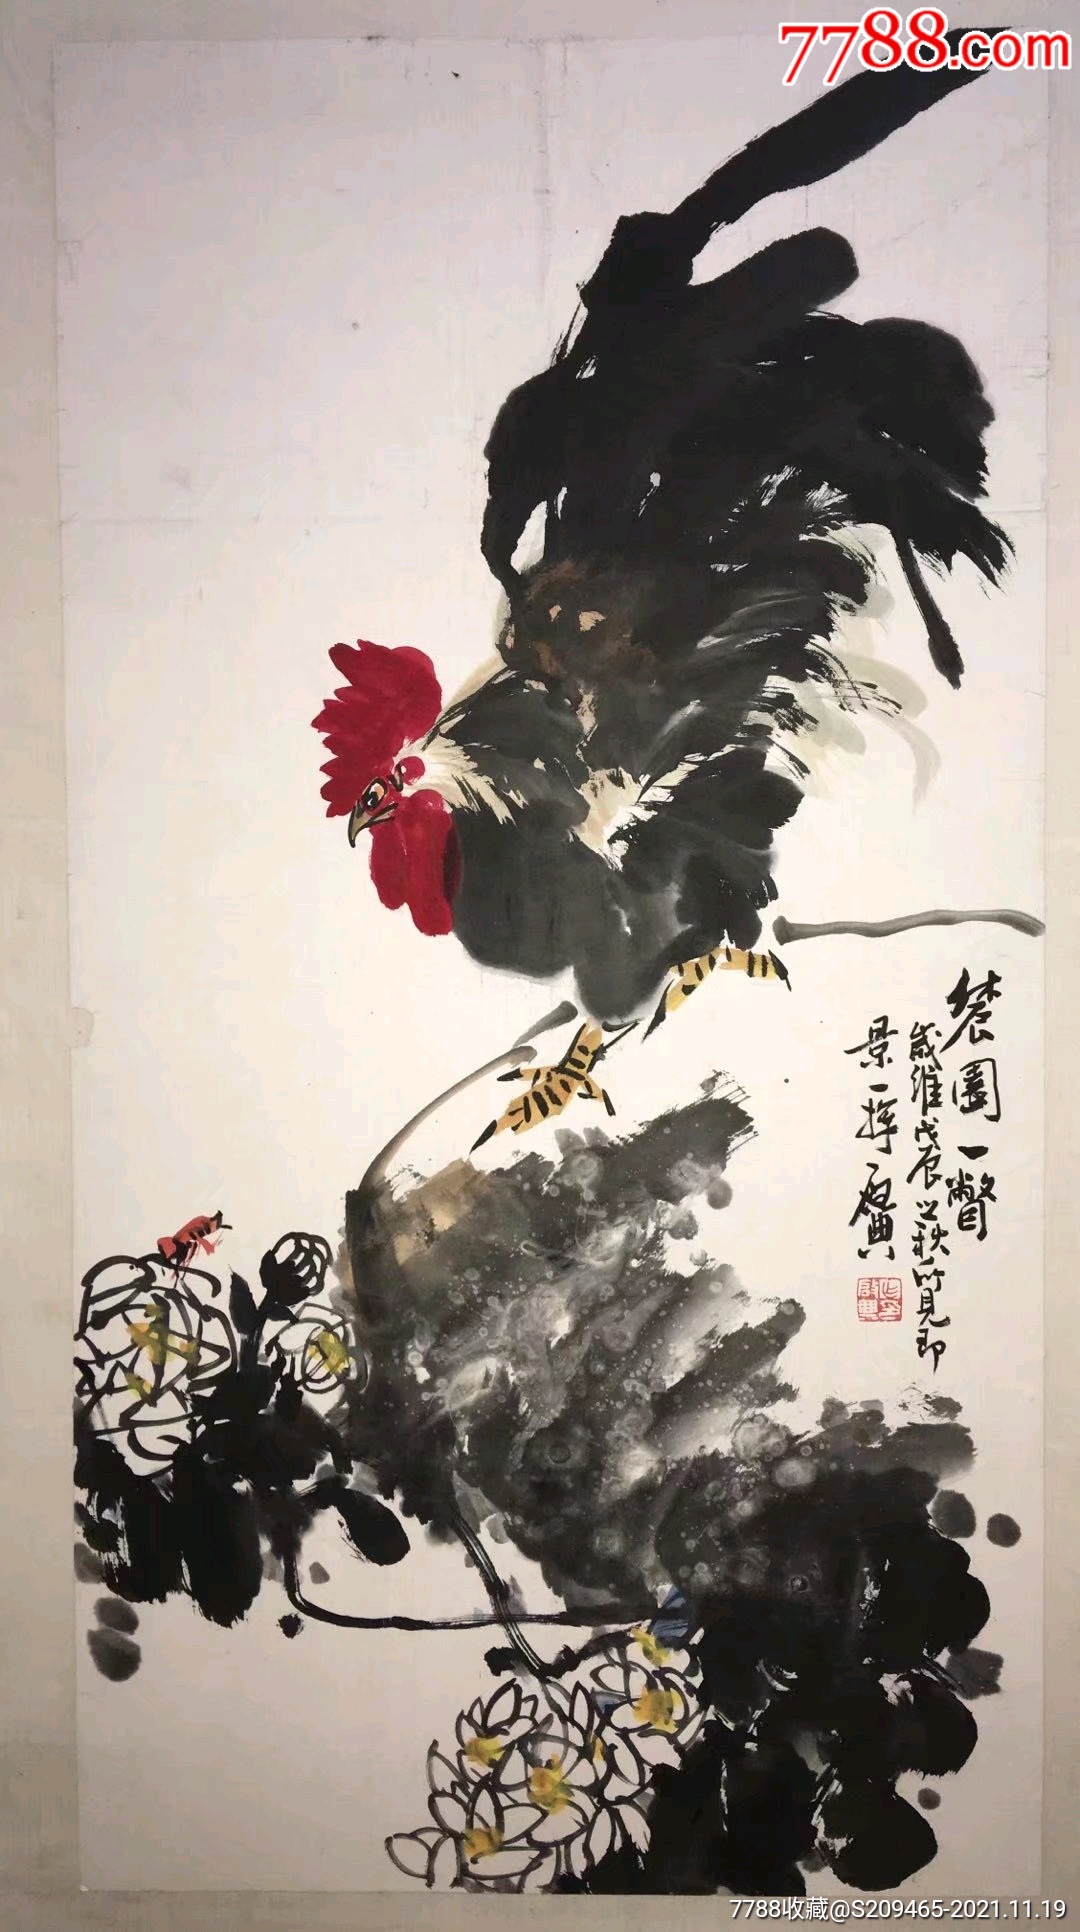 7788.com
辳園一瞥
歲維戊辰之秋所見即
景一揮启典
7788收藏@S209465-2021.11.19